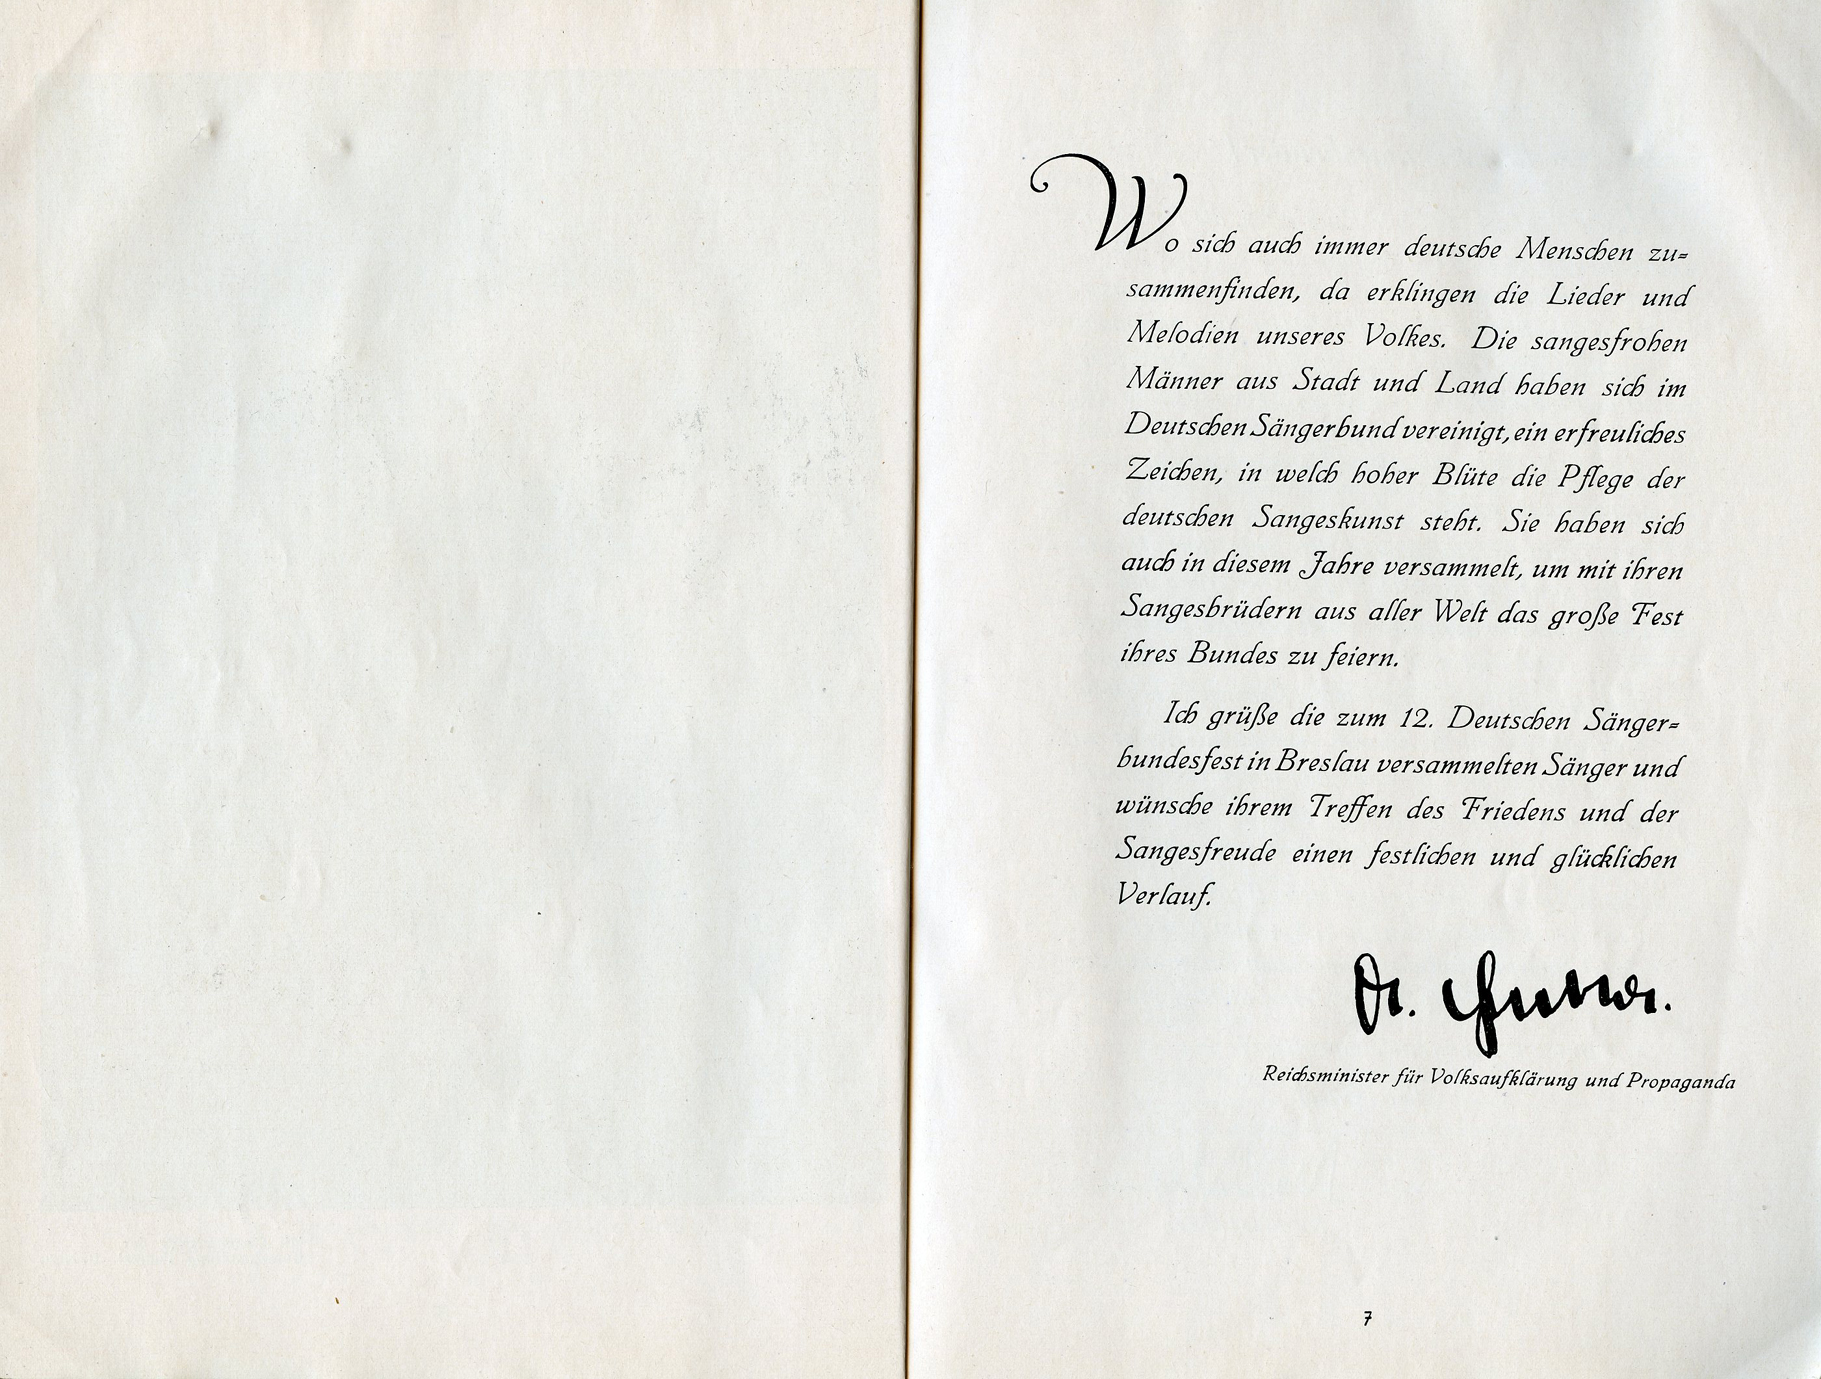 Wo sich auch immer deutsche Menschen zu=
sammenfinden, da erklingen die Lieder und
Melodien unseres Volkes. Die sangesfrohen
Männer aus Stadt und Land haben sich im
Deutschen Sängerbund vereinigt, ein erfreuliches
Zeichen, in welch hoher Blüte die Pflege der
deutschen Sangeskunst steht. Sie haben sich
auch in diesem Jahre versammelt, um mit ihren
Sangesbrüdern aus aller Welt das große Fest
ihres Bundes zu feiern.
Ich grüße die zum 12. Deutschen Sänger=
bundesfest in Breslau versammelten Sänger und
wünsche ihrem Treffen des Friedens und der
Sangesfreude einen festlichen und glücklichen
Verlauf.
Dr.
Reichsminister für Volksaufklärung und Propaganda
7